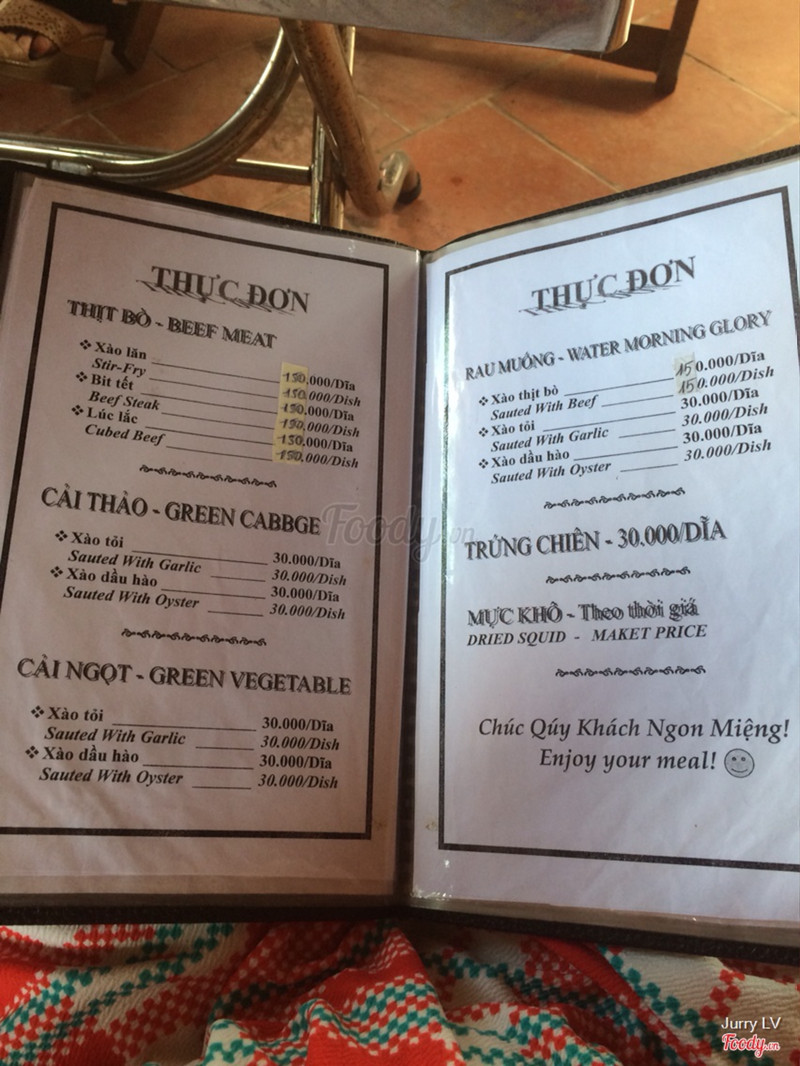 THỰC ĐƠN
THỊT BÒ - BEEF MEAT
❖ Xào lăn 150.000/Dĩa
Stir-Fry 150.000/Dish
❖ Bit tết 150.000/Dĩa
Beef Steak 150.000/Dish
❖ Lúc lắc 150.000/Dĩa
Cubed Beef 150.000/Dish
CẢI THẢO - GREEN CABBGE
❖ Xào tỏi 30.000/Dĩa
Sauted With Garlic 30.000/Dish
❖ Xào dầu hào 30.000/Dĩa
Sauted With Oyster 30.000/Dish
CẢI NGỌT - GREEN VEGETABLE
❖ Xào tỏi 30.000/Dĩa
Sauted With Garlic 30.000/Dish
❖ Xào dầu hào 30.000/Dĩa
Sauted With Oyster 30.000/Dish
THỰC ĐƠN
RAU MUỐNG - WATER MORNING GLORY
❖ Xào thịt bò 150.000/Dĩa
Sauted With Beef 150.000/Dish
❖ Xào tỏi 30.000/Dĩa
Sauted With Garlic 30.000/Dish
❖ Xào dầu hào 30.000/Dĩa
Sauted With Oyster 30.000/Dish
TRỨNG CHIÊN - 30.000/DĨA
MỰC KHÔ - Theo thời giá
DRIED SQUID - MAKET PRICE
Chúc Qúy Khách Ngon Miệng!
Enjoy your meal!
Foody.vn
Jurry LV
Foody.vn